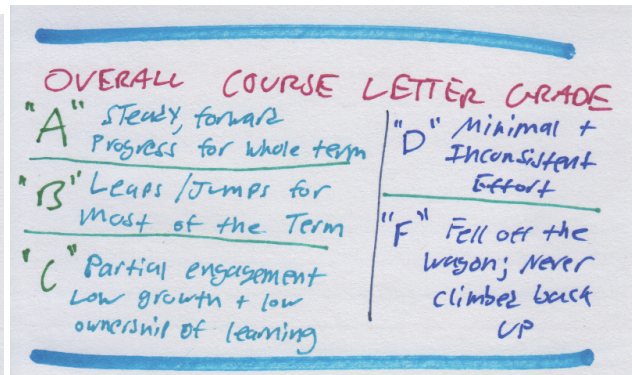 OVERALL COURSE LETTER GRADE
"A" Steady, forward
Progress for whole term
"B" Leaps / Jumps for
Most of the Term
"C" Partial engagement
Low growth + low
ownership of learning
"D" Minimal +
Inconsistent
Effort
"F" Fell off the
wagon; Never
climbed back
UP